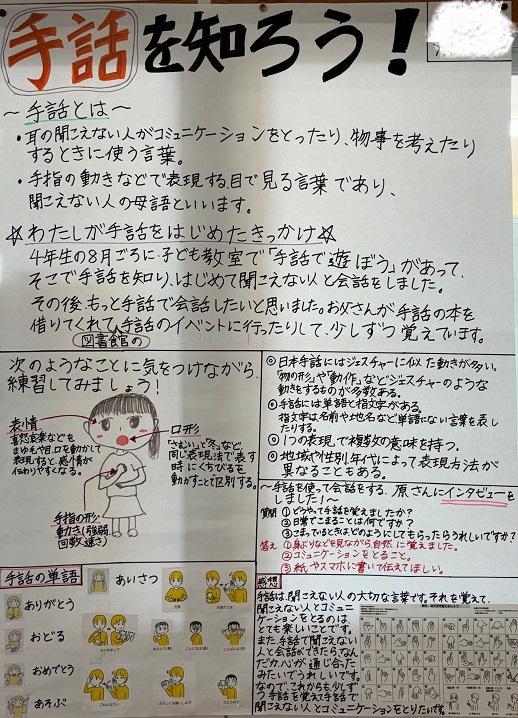 手話を知ろう!
～手話とは～
・耳の聞こえない人がコミュニケーションをとったり、物事を考えたり
するときに使う言葉。
・手指の動きなどで表現する、目で見る言葉であり、
聞こえない人の母語といいます。
☆わたしが手話をはじめたきっかけ☆
4年生の8月ごろに、子ども教室で「手話で遊ぼう」があって、
そこで手話を知り、はじめて聞こえない人と会話をしました。
その後、もっと手話で会話したいと思いました。お父さんが手話の本を
借りてくれて、手話のイベントに行ったりして、少しずつ覚えています。
図書館の
次のようなことに気をつけながら、
練習してみましょう!
表情
喜怒哀楽などを
まゆ毛や目、口を動かして
表現すると、感情が
伝わりやすくなる。
口形
「さむい」と「冬」など
同じ表現法で表す
時にくちびるを
動かすことで区別する。
手指の形・
動き(強弱、
回数、速さ)
◎日本手話にはジェスチャーに似た動きが多い。
「物の形」や「動作」などジェスチャーのような
動きをするものが多数ある。
◎手話には単語と指文字がある。
指文字は名前や地名など単語にない言葉を表し
たりする。
◎1つの表現で複数の意味を持つ。
◎地域や性別、年代によって表現方法が
異なることもある。
～手話を使って会話をする、原さんにインタビューを
しました!～
質問 ①どうやって手話を覚えましたか?
②日常でこまることは何ですか?
③こまっているときはどのようにしてもらったらうれしいですか?
答え ①身ぶりなどを見ながら、自然に覚えました。
②コミュニケーションをとること。
③紙やスマホに書いて伝えてほしい。
手話の単語
ありがとう
おどる
おめでとう
あそぶ
あいさつ
はじめまして
おはよう
こんにちは
こんばんは
ごめんなさい
感想
手話は、聞こえない人の大切な言葉です。それを覚えて、
聞こえない人とコミュニ
ケーションをとるのは、
とても楽しいことです。
また、手話で聞こえない
人と会話ができたら、なん
だか、心が通じ合った
みたいでうれしいです。
なので、これからも少しず
つ手話を覚えて手話で
聞こえない人とコミュニケーションをとりたいです。